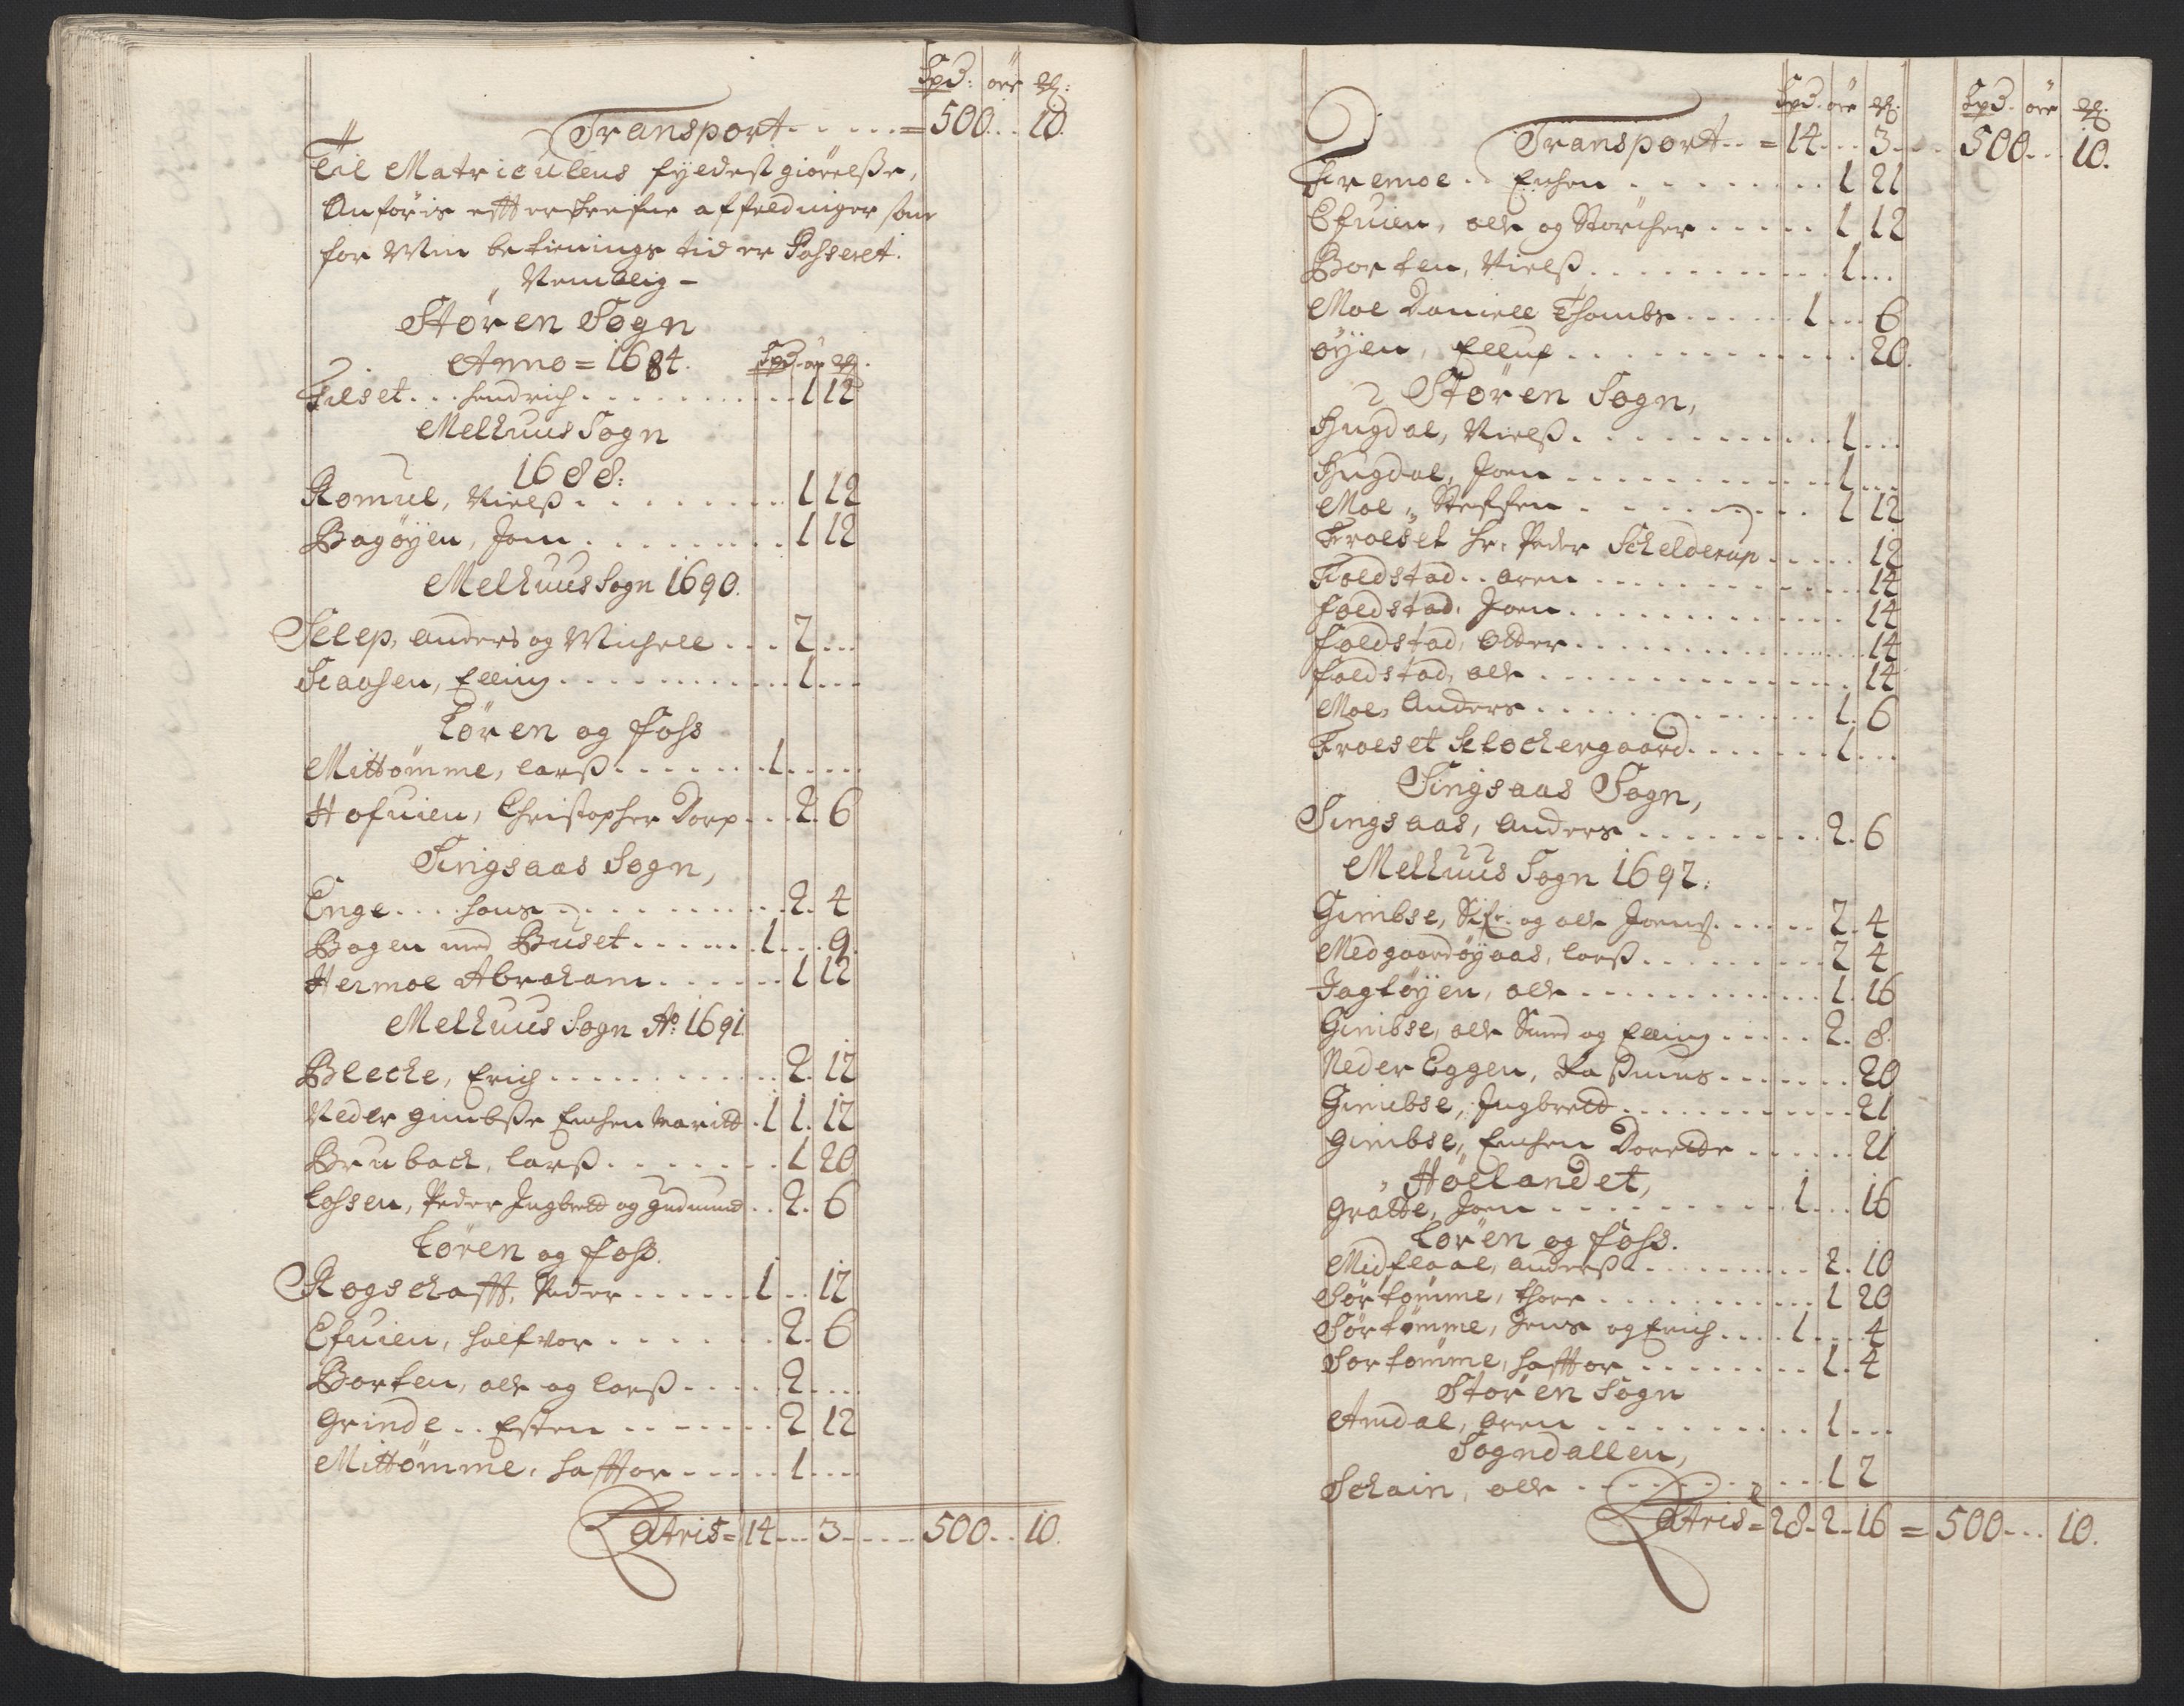 Spd: ørr
Transport = 500 . . 10.
Til Matriculens fyldestgiørelße,
Anføris effterskrefne affeldninger som
for Min betienings tid er Passeret.
Nemblig -
Støren Sogn
Anno = 1684. Spd. ør
Filset . . . Hendrich . . . 1 12
Melhuus Sogn
1688:
Romul, Nielß . . . 1 12
Bagøyen, Joen . . . 1 12
Melhuus Sogn 1690.
Slep, Anders og Michell . . . 2 . . .
Elling . . . 1 . . .
Hører og Foss
Mittømme, Larß . . . 1 . . .
Hofuien, Christopher Dorp . . . 2. 6
Singsaas Sogn,
Enge . . . Hans . . . 2. 4
Bogen med Buset . . . 1 . . 9.
Hermoe Abraham . . . 1 12
Melhuus Sogn Ao. 1691.
Blecke, Erich . . . 2. 12
Neder Gimbße Enchen Maritt . 1 1. 12
Brubach, Larß . . . 1 20
Losen, Peder Ingbrett og Gudmund . . 2. 6
Horen og Foss.
Rogschafft, Peder . . . 1 . . 12
Efuien, Halfvor . . . 2. 6
Borten, Olle og Larß . . . 2 . . .
Grinde . . Esten . . . 2 12
Mittømme, Hafftor . . . 1 . . .
Latris = 14 . . . 3 . . . 500 . . 10.
Spd. ørr Spd. ørr
Transport . . = 14 . . . 3 . . . 500 . . . 10.
Fremoe . . Enchen . . . 1 21
Efuien, Olle og . . . 1 12
Borten, Nielß . . . 1 . . .
Moe Daniell Thombs . . . 1 . . . 6
Øyen, Elluf . . . 20.
Støren Sogn,
Hugdal, Nielß . . . 1 . . .
Hugdal, Joen . . . 1 . . .
Moe, Steffen . . . 1 12
Froeset Hr: Peder Schelderup . . . 12
Foldstad . . Oren . . . 14
Foldstad, Joen . . . 14
Foldstad, Otter . . . 14
Foldstad, Olle . . . 14
Moe, Anders . . . 1. 6
Froeset Klochergaard . . . 1 . . .
Singsaas Sogn,
Singsaas, Anders . . . 2. 6
Melhuus Sogn 1692:
Gimbse, og Olle Joens . . . 2. 4
Medgaardøyaas, Larß . . . 2 4
Jagtøyen, Olle . . . 1. 16
Gimbse, Olle Smed og Elling . . . 2. 8.
Neder Eggen, Raßmus . . . 20
Gimbse, Ingbrett . . . 21
Gimbse, Enchen Dorette . . . 21
Høelandet,
Gratte, Joen . . . 1 . . . 16
Horen og Foss.
Midflaae, Anderß . . . 2. 10
Sørtømme, Thore . . . 1 20
Sørtømme, Jens og Erich . . . 1 . . . 4
Sørtømme, Hafftor . . . 1. 4
Støren Sogn
Amdal, Oren . . . 1 . . .
Sogndallen,
Schain, Olle . . . 1 2
Latris = 28. 2. 16 = 500 . . . 10.